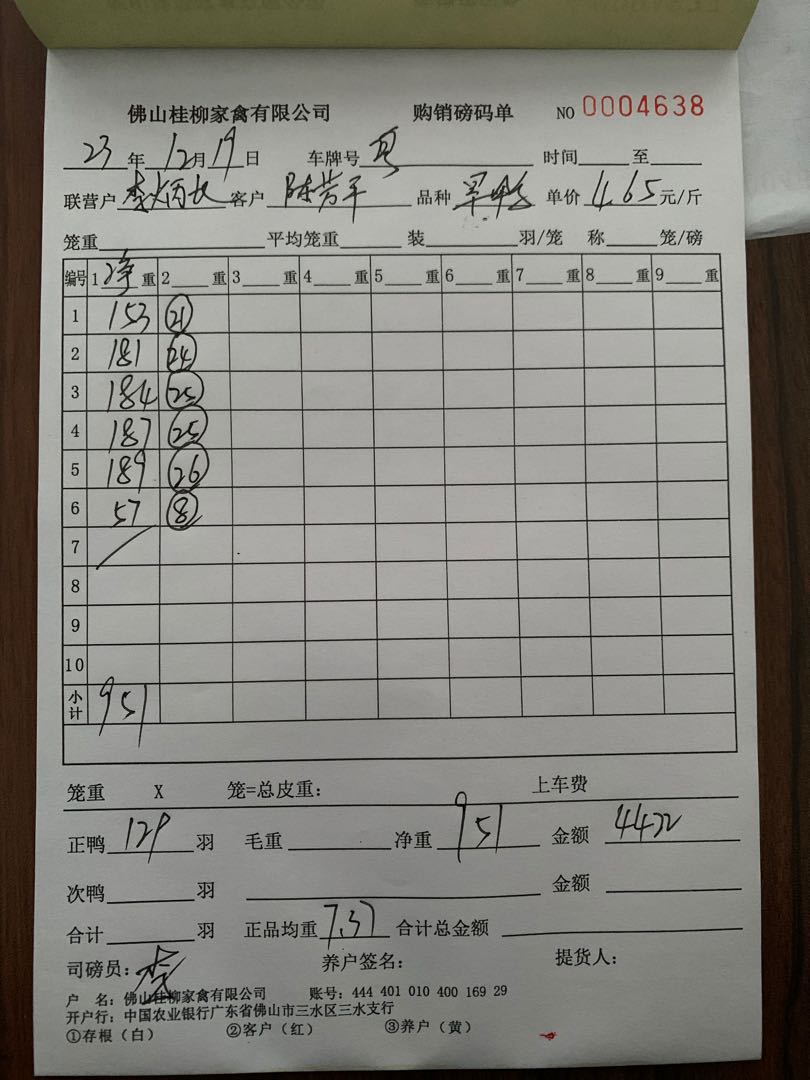 佛山桂柳家禽有限公司 购销磅码单 NO 0004638
23年12月19日 车牌号 时间 至
联营户 李炳长 客户 陈芳平 品种 单价 4.65 元/斤
笼重 平均笼重 装 羽/笼 称 笼/磅
编号 1 净 重 2 重 3 重 4 重 5 重 6 重 7 重 8 重 9 重
1 153 21
2 181 24
3 184 25
4 187 25
5 189 26
6 57 8
7
8
9
10
小计 951
笼重 X 笼=总皮重: 上车费
正鸭 129 羽 毛重 净重 951 金额 4422
次鸭 羽 金额
合计 羽 正品均重 7.37 合计总金额
司磅员: 李 养户签名: 提货人:
户 名: 佛山桂柳家禽有限公司 账号: 444 401 010 400 169 29
开户行: 中国农业银行广东省佛山市三水区三水支行
①存根（白） ②客户（红） ③养户（黄）